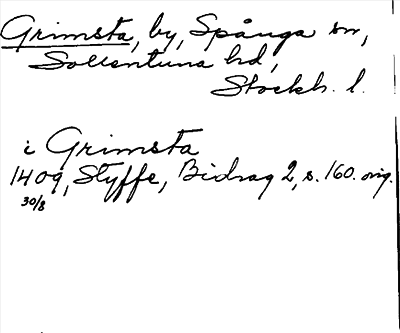 Grimsta, by, Spånga sn,
Sollentuna hd,
Stockh. l.
i Grimsta
1409, Styffe, Bidrag 2, s. 160. orig.
30/8